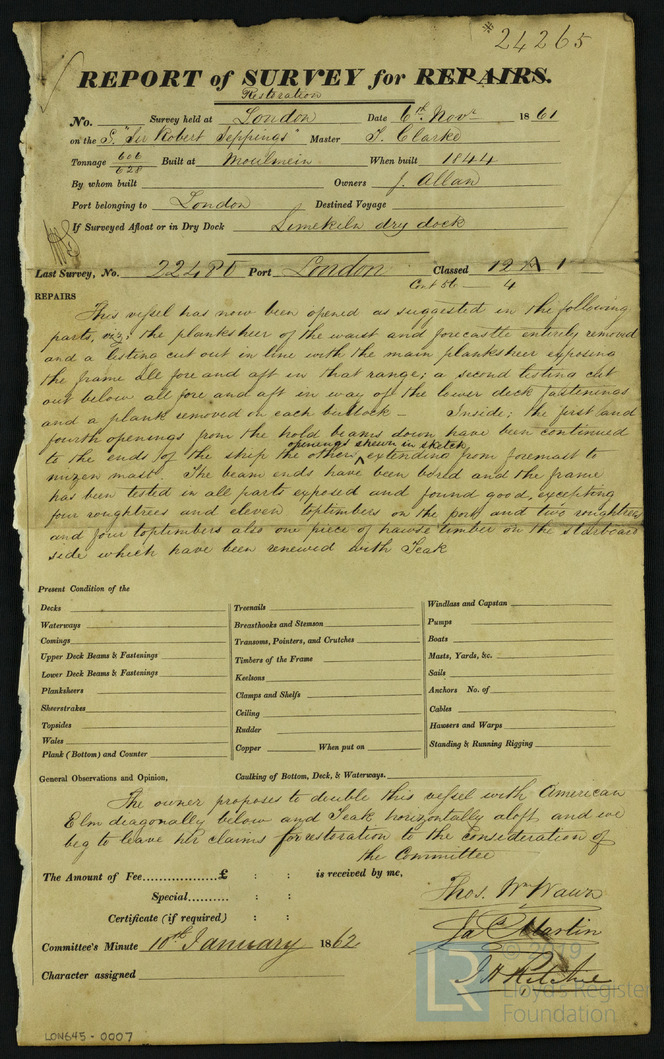 # 24265
REPORT of SURVEY for REPAIRS.
Restoration
No. Survey held at London Date 6th Novr 1861
on the S. "Sir Robert Seppings" Master T. Clarke
Tonnage 606 / 628 Built at Moulmein When built 1844
By whom built Owners J. Allan
Port belonging to London Destined Voyage
If Surveyed Afloat or in Dry Dock Limekiln dry dock
Last Survey, No. 22480 Port London Classed 12 A 1
Cont 56 4
REPAIRS
This vessel has now been opened as suggested in the following
parts, viz; the planksheer of the waist and forecastle entirely removed
and a listing cut out in line with the main planksheer exposing
the frame all fore and aft in that range; a second listing cut
out below all fore and aft in way of the lower deck fastenings
and a plank removed in each buttock — Inside; the first and
fourth openings from the hold beams down have been continued
to the ends of the ship the other openings shewn in sketch extending from foremast to
mizen mast. The beam ends have been bored and the frame
has been tested in all parts exposed and found good, excepting
four roughtrees and eleven toptimbers on the port and two roughtrees
and four toptimbers also one piece of hawse timber on the starboard
side which have been renewed with Teak
Present Condition of the
Decks
Waterways
Comings
Upper Deck Beams & Fastenings
Lower Deck Beams & Fastenings
Planksheers
Sheerstrakes
Topsides
Wales
Plank (Bottom) and Counter
Treenails
Breasthooks and Stemson
Transoms, Pointers, and Crutches
Timbers of the Frame
Keelsons
Clamps and Shelfs
Ceiling
Rudder
Copper When put on
Windlass and Capstan
Pumps
Boats
Masts, Yards, &c.
Sails
Anchors No. of
Cables
Hawsers and Warps
Standing & Running Rigging
General Observations and Opinion, Caulking of Bottom, Deck, & Waterways.
The owner proposes to double this vessel with American
Elm deagonally below and Teak horizontally aloft and we
beg to leave her claims for restoration to the consideration of
the Committee
The Amount of Fee £ : : is received by me,
Special : :
Certificate (if required) : :
Thos. Wm Wawn
Jas Martin
J H Ritchie
Committee's Minute 10th January 1862
Character assigned
LON645-0007
© 2019
LR
Lloyd's Register
Foundation